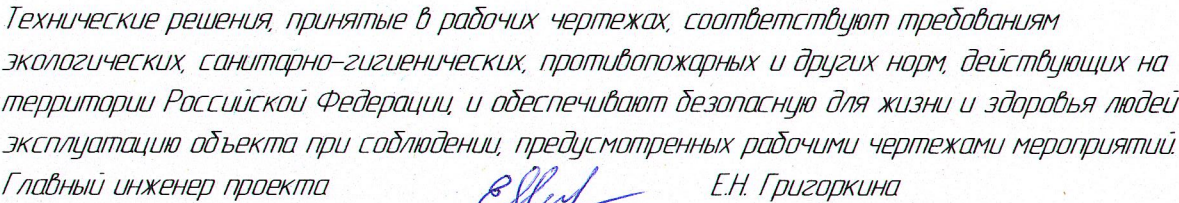 Технические решения, принятые в рабочих чертежах, соответствуют требованиям
экологических, санитарно-гигиенических, противопожарных и других норм, действующих на
территории Российской Федерации, и обеспечивают безопасную для жизни и здоровья людей
эксплуатацию объекта при соблюдении, предусмотренных рабочими чертежами мероприятий.
Главный инженер проекта Е.Н. Григоркина